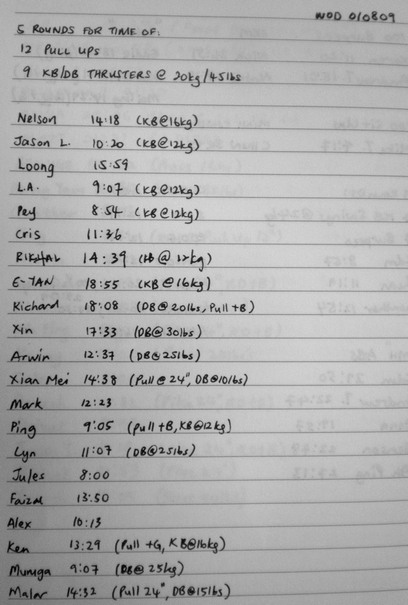 WOD 010809
5 ROUNDS FOR TIME OF:
12 PULL UPS
9 KB/DB THRUSTERS @ 20kg/45lbs
Nelson 14:18 (KB@16kg)
Jason L. 10:20 (KB@12kg)
Loong 15:59
L.A. 9:07 (KB@12kg)
Pey 8:54 (KB@12kg)
Cris 11:36
14:39 (KB @ 12kg)
E-TAN 18:55 (KB@16kg)
Richard 18:08 (DB@20lbs, Pull+B)
Xin 17:33 (DB@30lbs)
Arwin 12:37 (DB@25lbs)
Xian Mei 14:38 (Pull@24", DB@10lbs)
Mark 12:23
Ping 9:05 (Pull+B, KB@12kg)
Lyn 11:07 (DB@25lbs)
Jules 8:00
Faizal 13:50
Alex 10:13
Ken 13:29 (Pull+G, KB@16kg)
Muruga 9:07 (DB@25kg)
Malar 14:32 (Pull 24", DB@15lbs)